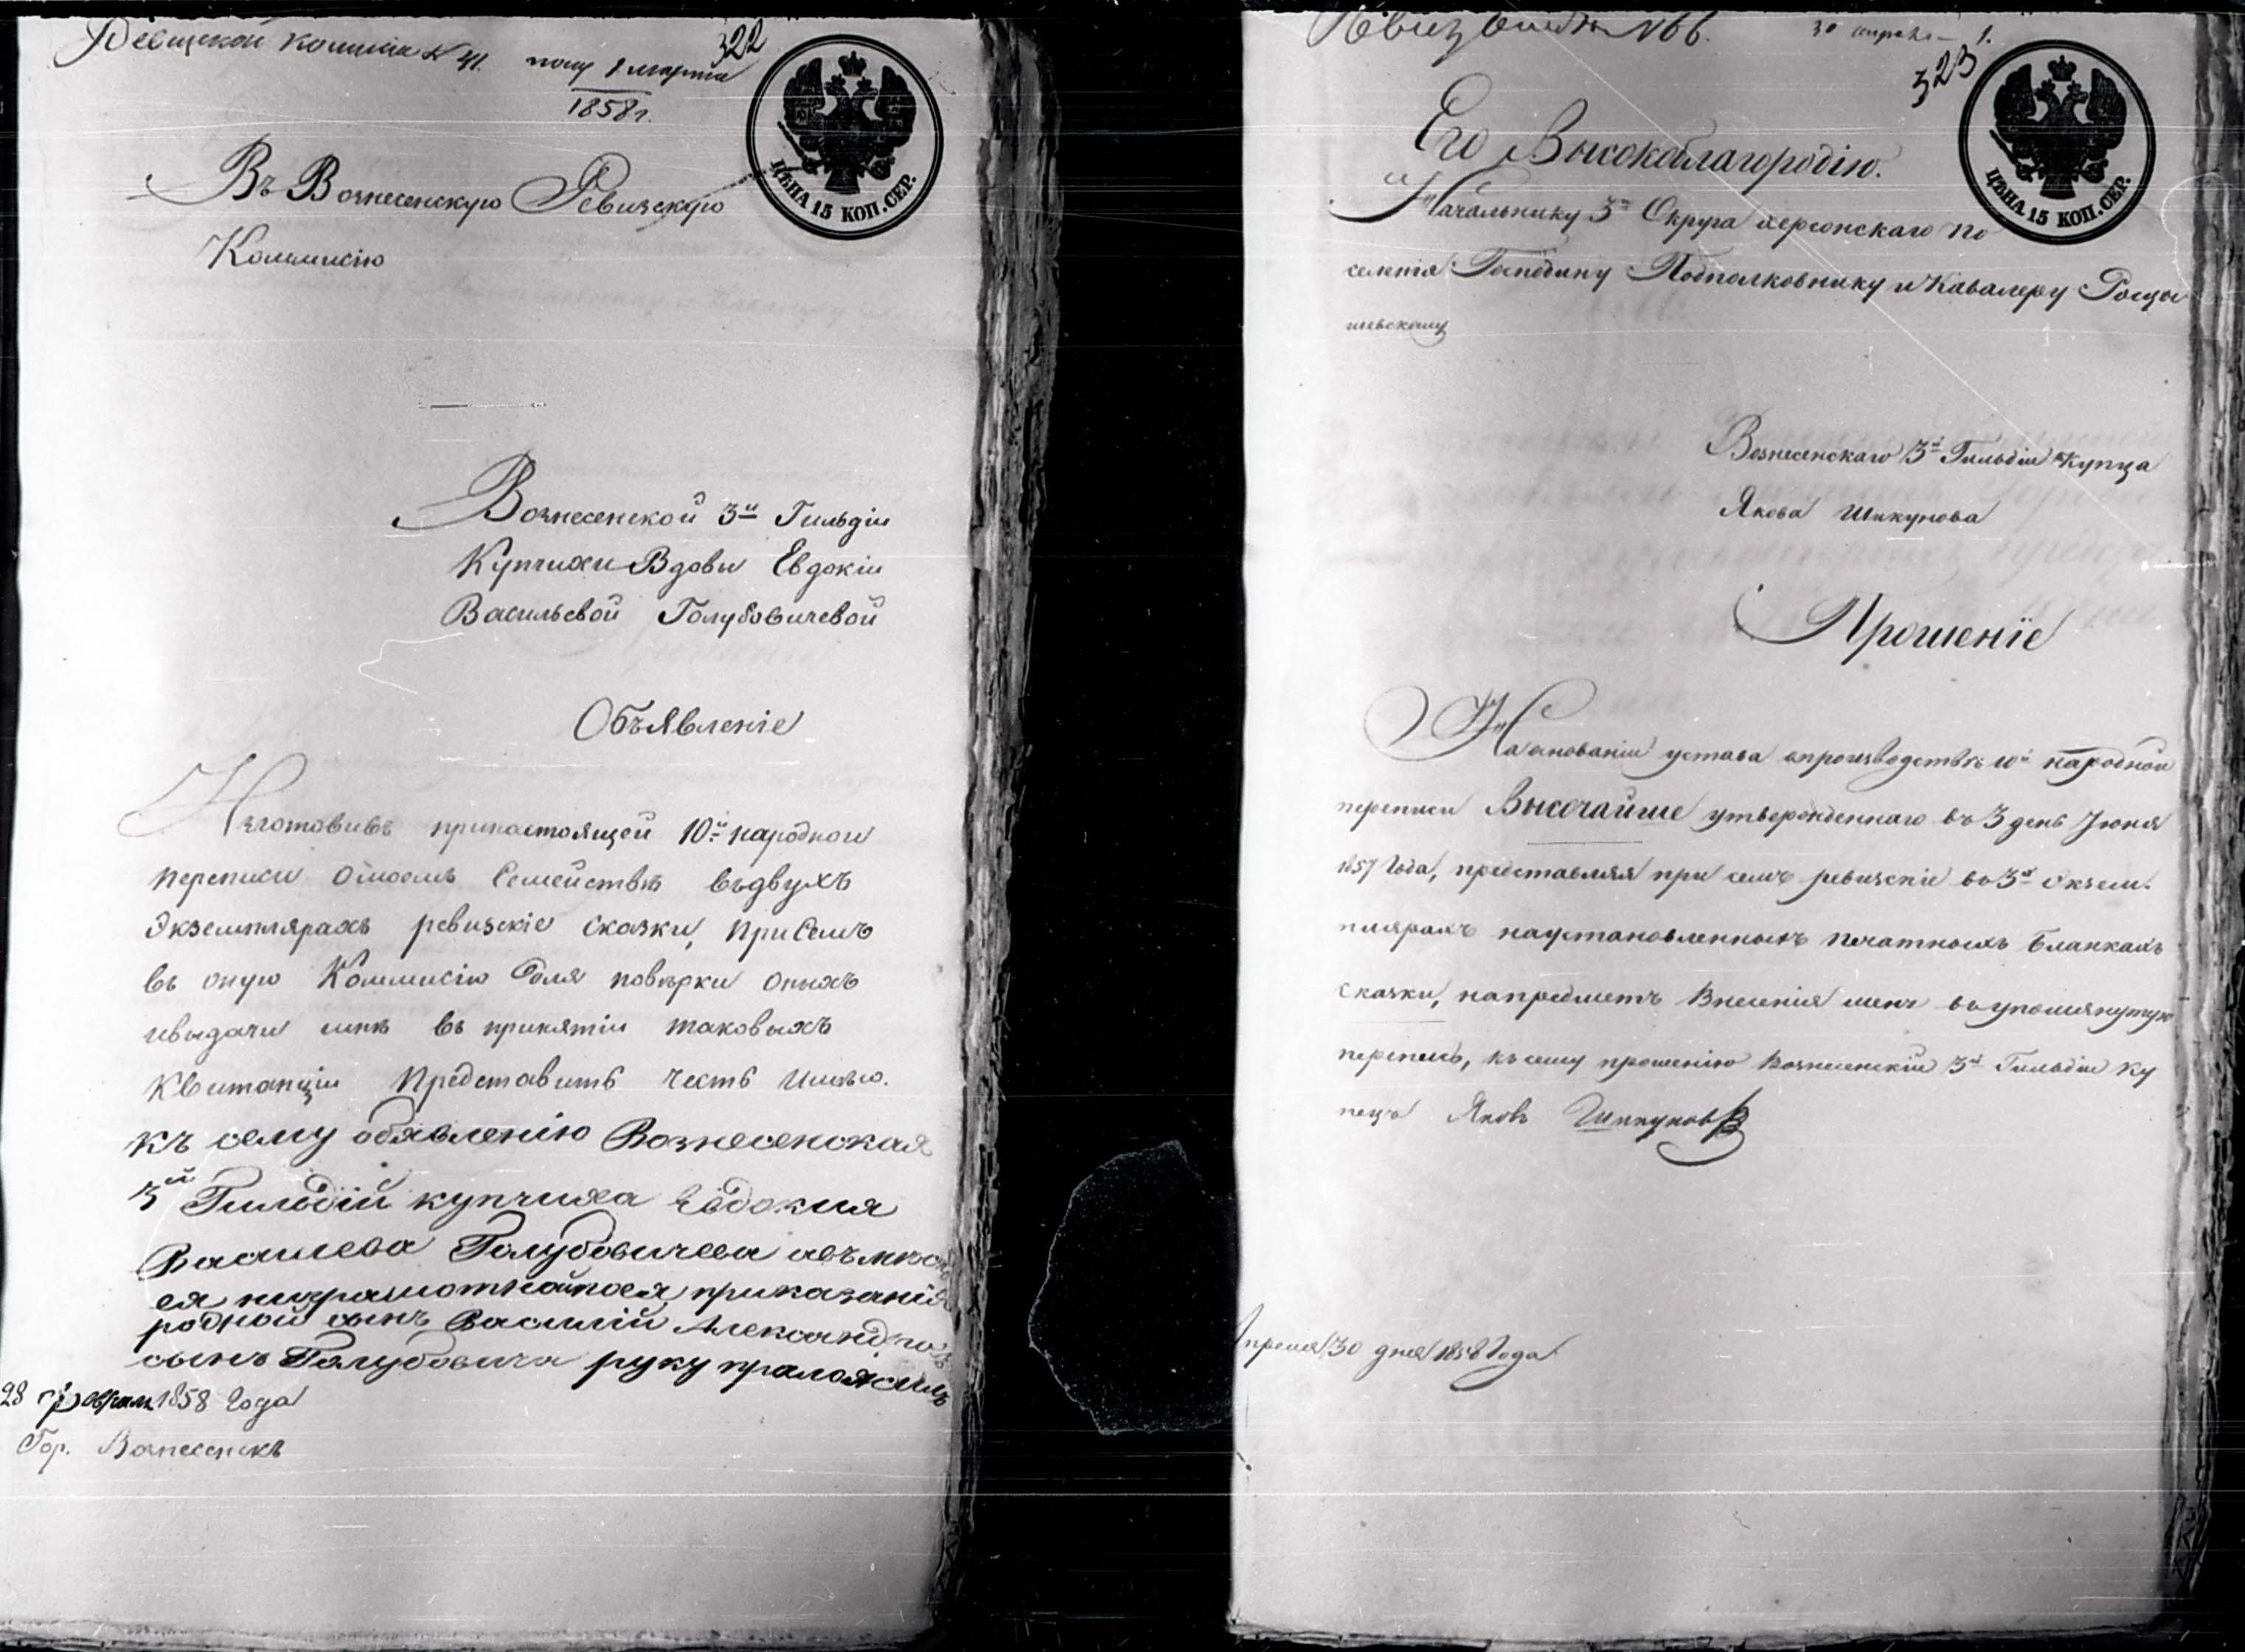 322
Ревизской комисіи N 41. полу 1 марта
1858 г.
ЦѢНА 15 КОП. СЕР.
Въ Вознесенскую Ревизскую
Коммисію
Вознесенской 3й Гильдіи
Купчихи Вдовы Евдокіи
Васильевой Голубовичевой
Объявленіе
Изготовивъ принастоящей 10й народной
переписи омоемъ Семействѣ въдвухъ
Экземплярахъ ревизскіе сказки, при Семъ
въ оную Коммисію для повѣрки оныхъ
ивыдачи мнѣ въ принятіи таковыхъ
Квитанціи Представить честь Имѣю.
Къ сему обявленію Вознесенская
3й Гильдій купчиха Евдокия
Василева Голубовичева авъместо
ея ниграмотной поея приказанія
родной сынъ Василій Александровъ
сынъ Голубовичъ руку приложилъ
28 Февраля 1858 Года
Гор. Вознесенскъ
N 66. 30 апреля 1.
323
ЦѢНА 15 КОП. СЕР.
Его Высокоблагородію.
Начальнику 3го Округа херсонскаго по
селенія Господину Подполковнику и Кавалеру
Вознесенскаго 3й Гильдіи Купца
Якова Шикунова
Прошеніе
Наоснованіи устава опроизводствѣ 10й народной
переписи Высочайше утвержденнаго въ 3 день Июня
1857 Года, представляя при семъ ревизскіе во 3х Екзем.
плярахъ наустановленныхъ печатныхъ бланкахъ
сказки, напредметъ внесенія меня въупомянутую
перепись, къ сему прошенію Вознесенскій 3й Гильдіи ку
пецъ Яковъ Шикуновъ
Апреля 30 дня 1858 Года